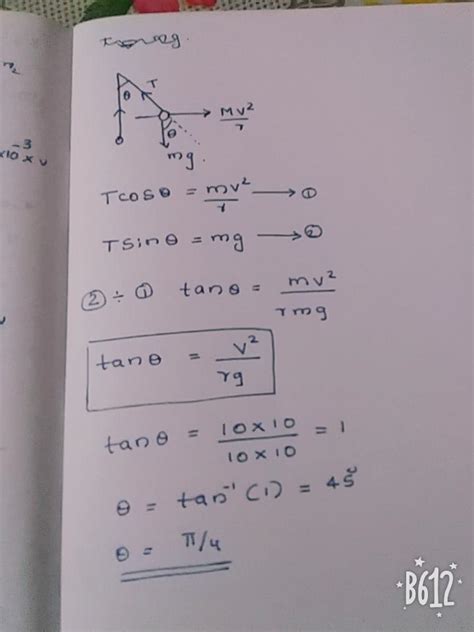 θ T
mv²/r
θ
mg.
×10⁻³ × v
Tcosθ = mv²/r → ①
Tsinθ = mg → ②
② ÷ ① tanθ = mv²/rmg
tanθ = v²/rg
tanθ = 10×10/10×10 = 1
θ = tan⁻¹(1) = 45°
θ = π/4
B612